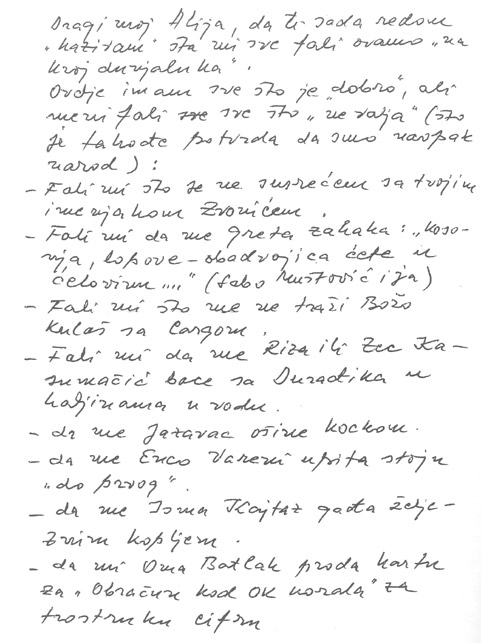 Dragi moj Alija, da ti sada redom
"kazivam" šta mi sve fali ovamo "na
kraj dunjaluka".
Ovdje imam sve što je "dobro", ali
meni fali sve sve što "ne valja" (što
je takođe potvrda da smo naopak
narod):
- Fali mi što se ne susrećem sa tvojim
imenjakom Zvonićem.
- Fali mi da me Greta zakaka: "Koso-
nja, lopove - obadvojica ćete u
ćelovinu...." (Sabo Mustović i ja)
- Fali mi što me ne traži Božo
Kulaš sa Cargom.
- Fali mi da me Riza ili Zec Ka-
sumačić bace sa Duradžika u
haljinama u vodu.
- da me Jazavac ošine kockom.
- da me Enco Vareni upita stoju
"do prvog".
- da me Isma Klajtaz gađa želje-
znim kopljem.
- da mi Oma Batlak proda kartu
za "Obračun kod OK korala" za
trostruku cifru